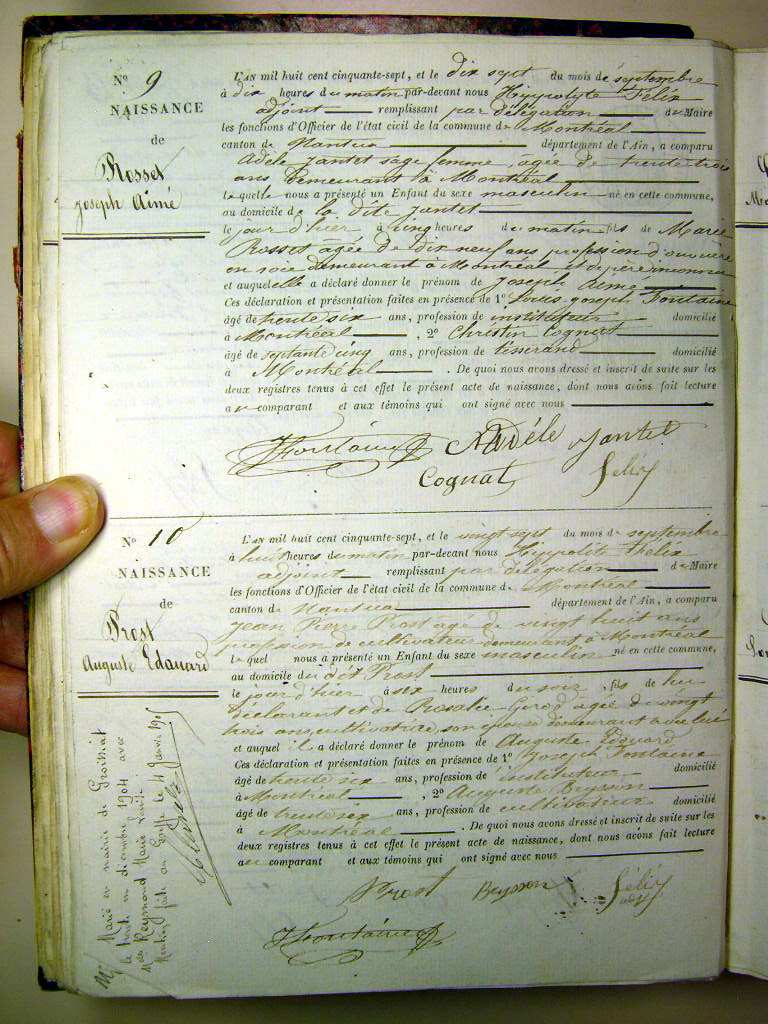 N° 9
NAISSANCE
de
Rosset
Joseph Aimé
L'AN mil huit cent cinquante-sept, et le dix sept du mois de septembre
à dix heures du matin par-devant nous Hyppolyte Félix
adjoint remplissant par délégation de Maire
les fonctions d'Officier de l'état civil de la commune de Montréal
canton de Nantua département de l'Ain, a comparu
Adèle Jantet sage femme, agée de trente trois
ans demeurant à Montréal
lequelle nous a présenté un Enfant du sexe masculin né en cette commune,
au domicile de la dite Jantet
le jour d'hier à cinq heures du matin fils de Marie
Rosset agée de dix neuf ans profession d'ouvrière
en soie demeurant à Montréal, et de père inconnu
et auquel elle a déclaré donner le prénom de Joseph Aimé
Ces déclaration et présentation faites en présence de 1° Louis Joseph Fontaine
âgé de trente six ans, profession de instituteur domicilié
à Montréal, 2° Christin Cognat
âgé de septante cinq ans, profession de tisserand domicilié
à Montréal. De quoi nous avons dressé et inscrit de suite sur les
deux registres tenus à cet effet le présent acte de naissance, dont nous avons fait lecture
au comparant et aux témoins qui ont signé avec nous
JFontaine Adéle Jantet
Cognat Félix
N° 10
NAISSANCE
de
Prost
Auguste Edouard
L'AN mil huit cent cinquante-sept, et le vingt sept du mois de septembre
à huit heures du matin par-devant nous Hyppolite Phelix
adjoint remplissant par délégation de Maire
les fonctions d'Officier de l'état civil de la commune de Montréal
canton de Nantua département de l'Ain, a comparu
Jean Pierre Prost agé de vingt huit ans
profession de cultivateur demeurant à Montréal
lequel nous a présenté un Enfant du sexe masculin né en cette commune,
au domicile du dit Prost
le jour d'hier à six heures du soir, fils de lui
déclarant et de Rosalie Girod agée de vingt
trois ans cultivatrice son épouse demeurant avec lui
et auquel il a déclaré donner le prénom de Auguste Edouard
Ces déclaration et présentation faites en présence de 1° Joseph Fontaine
âgé de trente six ans, profession de instituteur domicilié
à Montréal, 2° Auguste Beysson
âgé de trente six ans, profession de cultivateur domicilié
à Montréal. De quoi nous avons dressé et inscrit de suite sur les
deux registres tenus à cet effet le présent acte de naissance, dont nous avons fait lecture
au comparant et aux témoins qui ont signé avec nous
Prost Beysson Félix
JFontaine
Marié en mairie de Groissiat
le trente un décembre 1904 avec
Reymond Marie Louise
Mention faite au Greffe le 4 Janvier 1905